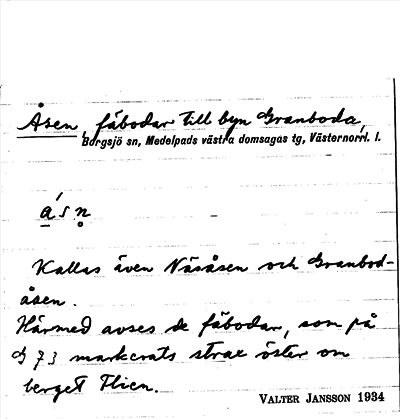 Åsen, fäbodar till byn Granboda,
Borgsjö sn, Medelpads västra domsagas tg, Västernorrl. l.
á s n̥
Kallas även Näsåsen och Granbod-
åsen.
Härmed avses de fäbodar, som på
G 73 markerats strax öster om
berget Flien.
VALTER JANSSON 1934